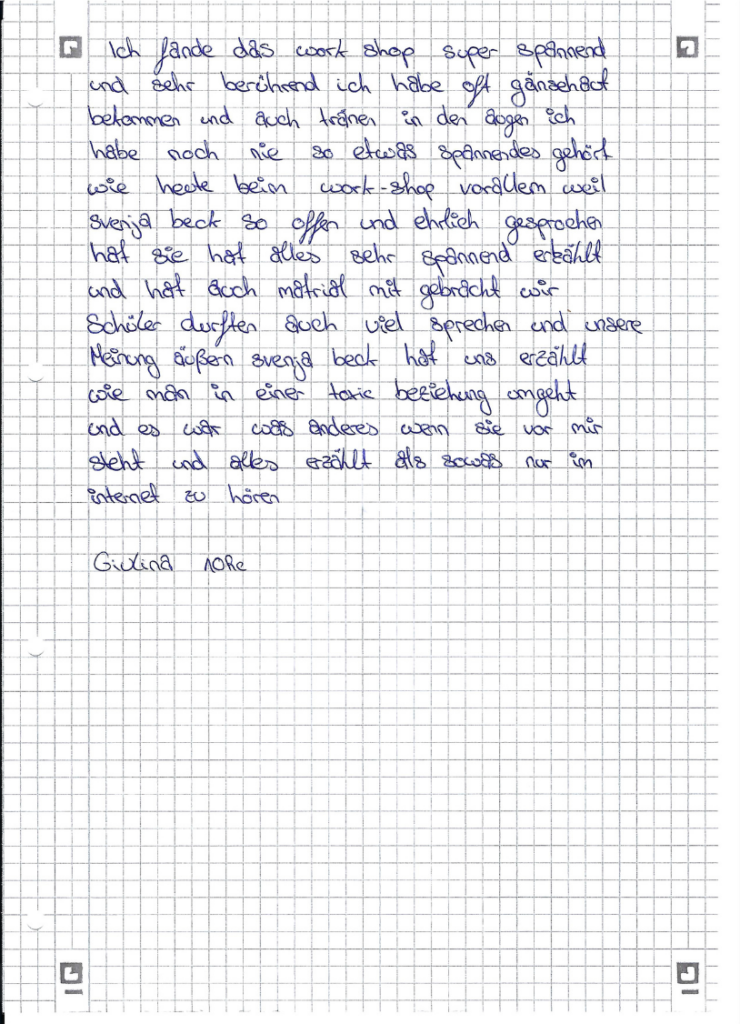 Ich fände das work shop super spannend
und sehr berührend ich habe oft gänsehaut
bekommen und auch tränen in den augen ich
habe noch nie so etwas spannendes gehört
wie heute beim work-shop vorallem weil
svenja beck so offen und ehrlich gesprochen
hat sie hat alles sehr spannend erzählt
und hat auch matrial mit gebracht wir
Schüler durften auch viel sprechen und unsere
Meinung äußern svenja beck hat uns erzählt
wie man in einer toxic beziehung umgeht
und es war was anderes wenn sie vor mir
steht und alles erzählt als sowas nur im
internet zu hören
Giulina 10Re